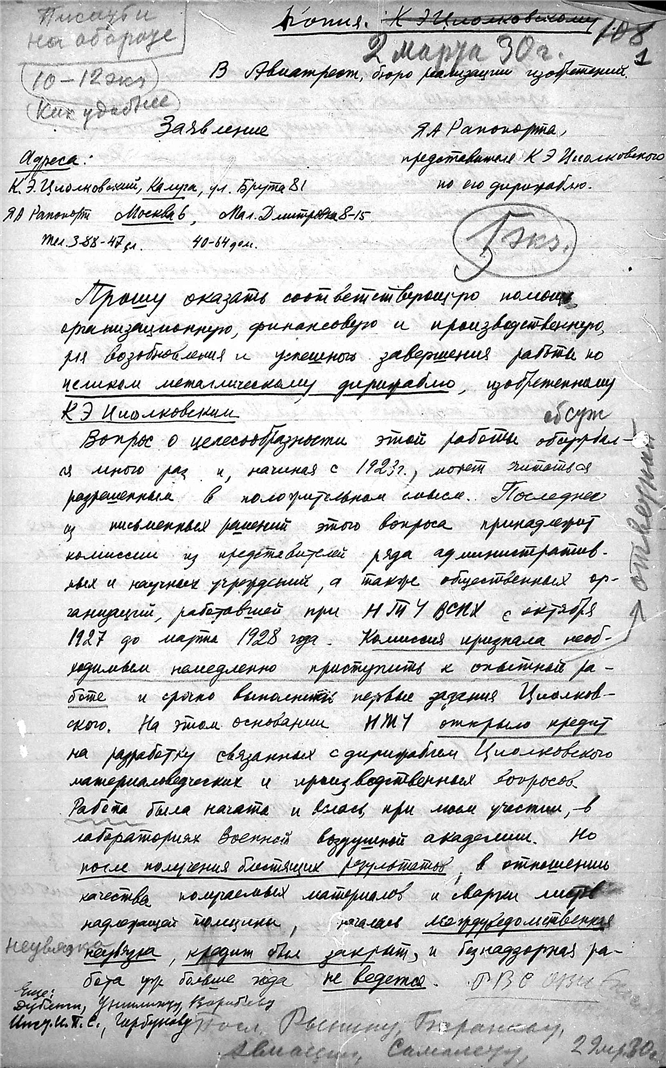 Писать
на обороте
10-12 экз
Как удобнее
Копия. К Э Циолковскому
108
1
2 марта 30 г.
В Авиатрест, бюро реализации изобретений.
Заявление
Я А Рапопорта,
представителя К Э Циолковского
по его дирижаблю.
Адреса:
К. Э. Циолковский, Калуга, ул. Брута 81
Я А Рапопорт Москва 6, Мал. Дмитровка 8-15
Тел. 3-88-47 сл. 40-64 дом.
5 экз.
Прошу оказать соответствующую помощь
организационную, финансовую и производственную,
для возобновления и успешного завершения работы по
цельнометаллическому дирижаблю, изобретенному
К Э Циолковским
обсуж
Вопрос о целесообразности этой работы обсуждал-
ся много раз и, начиная с 1923 г., может считаться
разрешенным в положительном смысле. Последнее
из письменных решений этого вопроса принадлежит
комиссии из представителей ряда административ-
ных и научных учреждений, а также общественных ор-
ганизаций, работавшей при НТУ ВСНХ с октября
1927 до марта 1928 года. Комиссия признала необ-
ходимым немедленно приступить к опытной ра-
боте и срочно выполнить первые задания Циолков-
ского. На этом основании НТУ открыло кредит
на разработку связанных с дирижаблем Циолковского
материаловедческих и производственных вопросов.
Работа была начата и велась, при моем участии, в
лабораториях Военной воздушной академии. Но
после получения блестящих результатов, в отношении
качества получаемых материалов и сварки
надлежащей толщины, началась междуведомственная
неувязка
неувязка, кредит был закрыт, и безнадзорная ра-
бота уже больше года не ведется. РВС
Еще:
Дубенки, Уншлихту, Воробьеву
Инст. И. П. С., Горбунову
Посл. Рынину, Баранову,
Авиации, Самолету, 29 мр 30 г